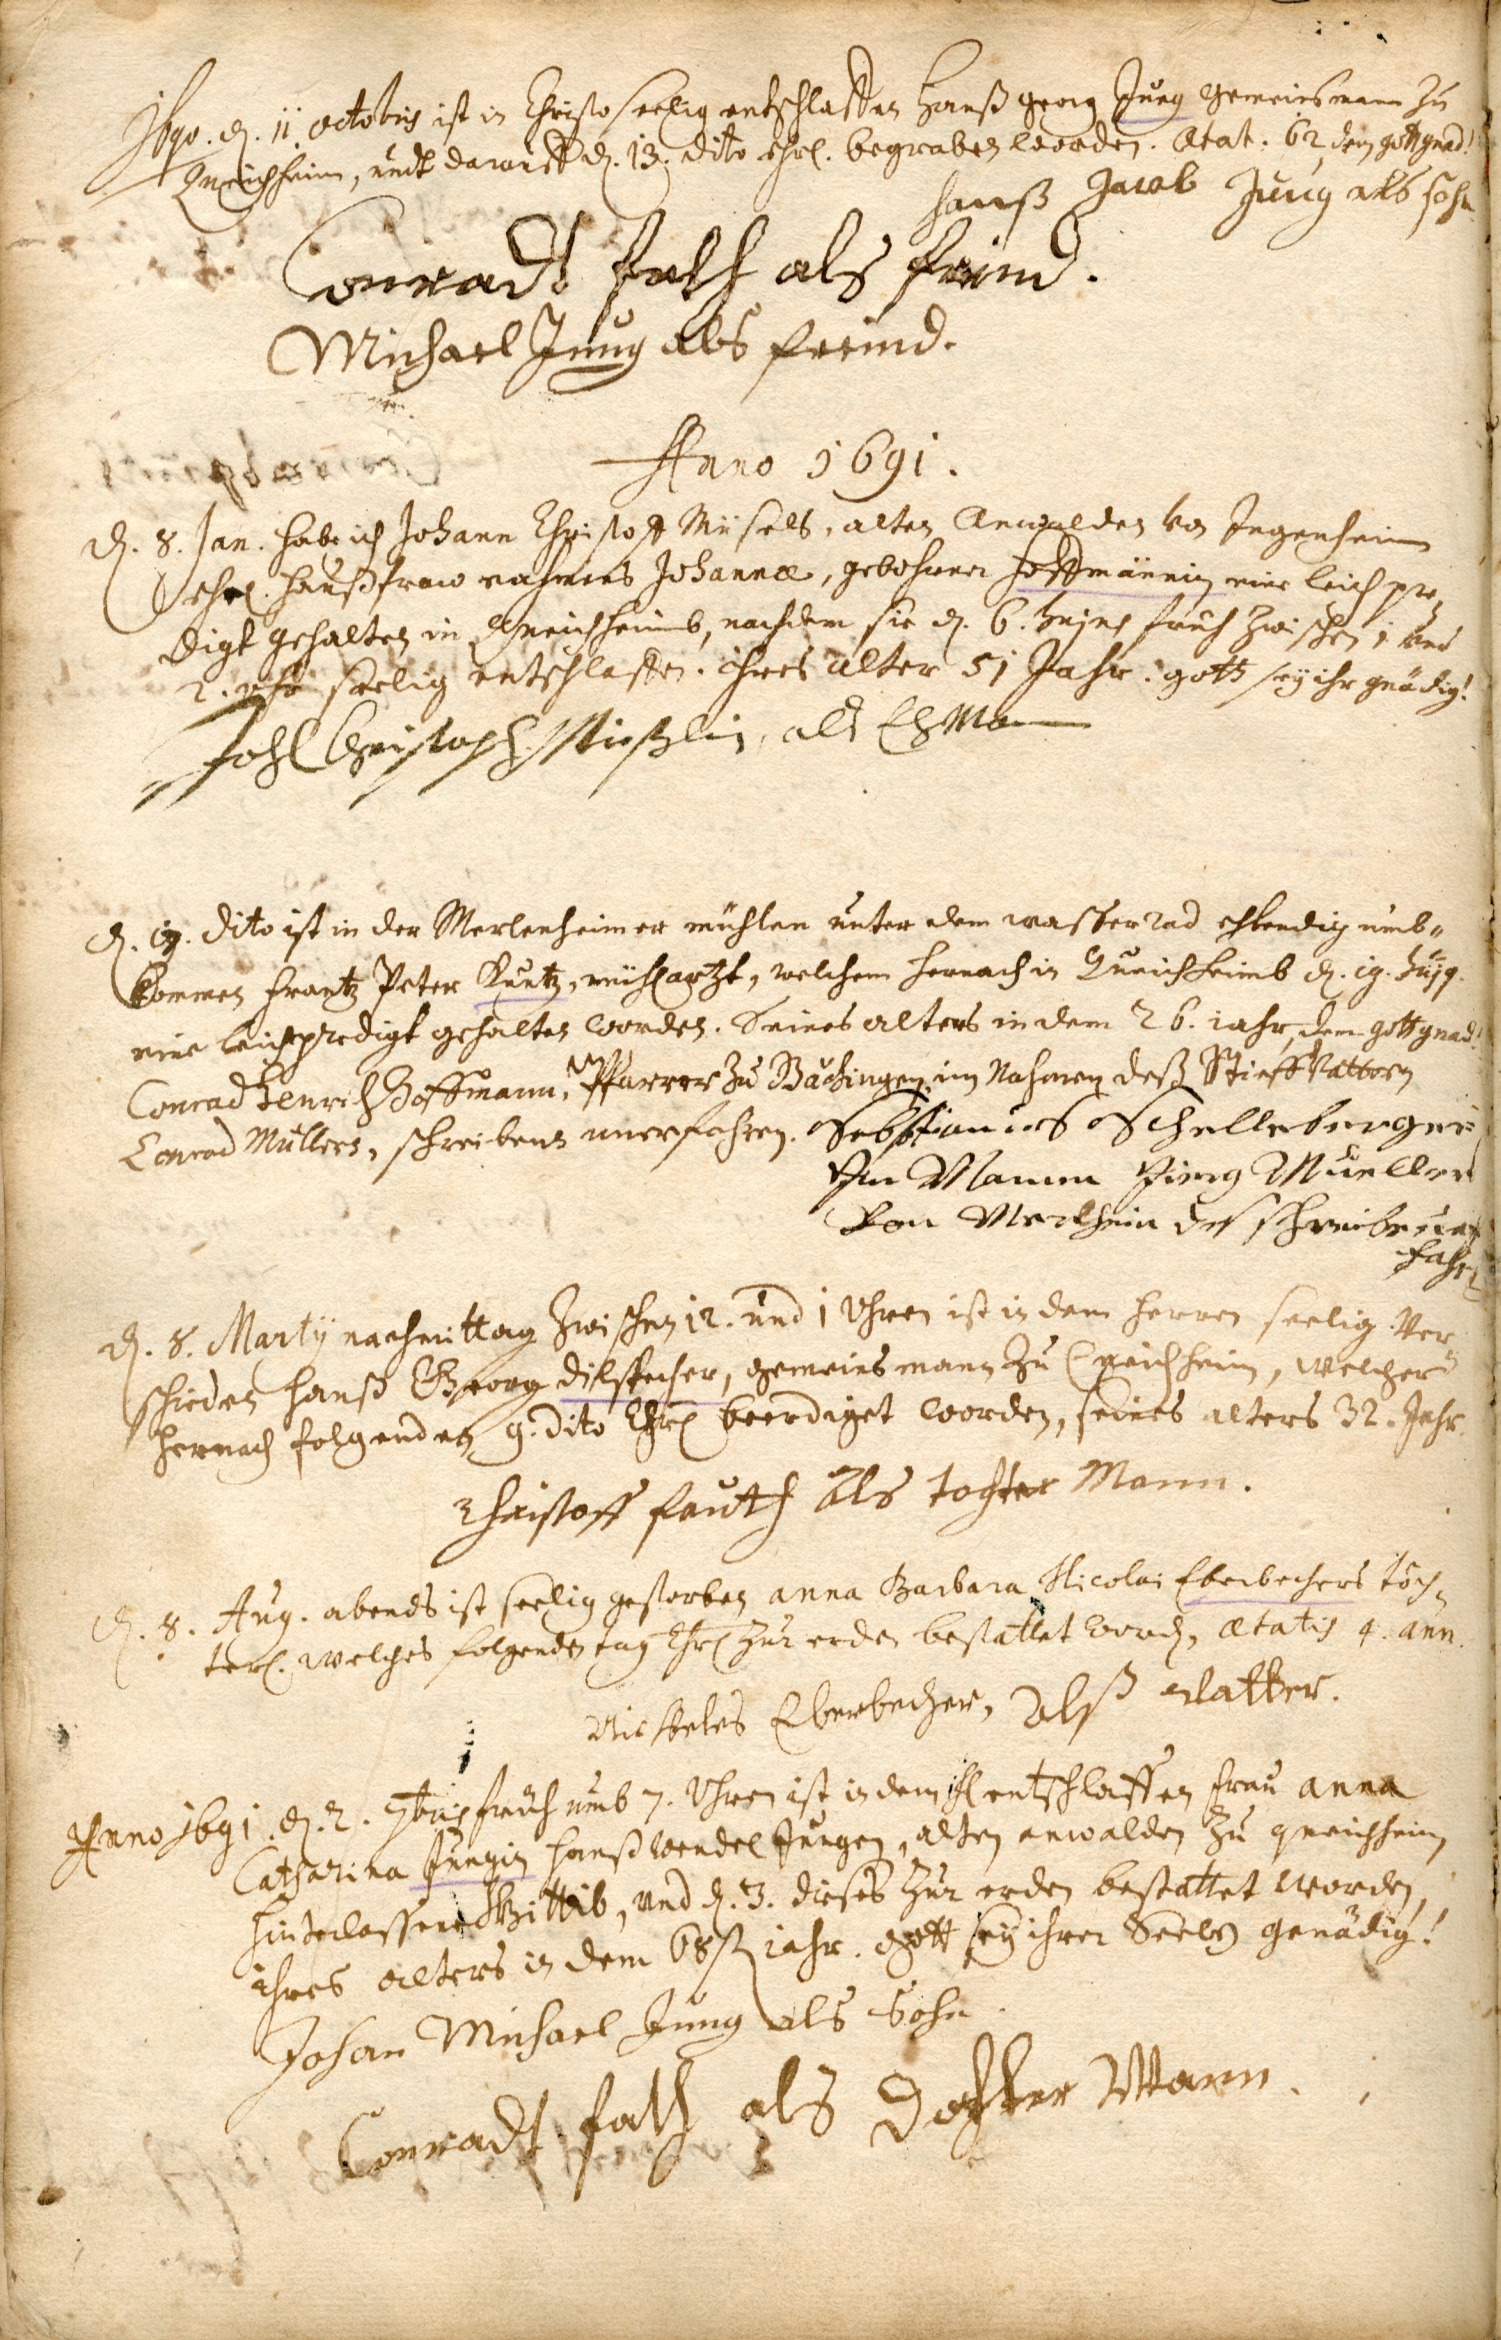 1690. d. 11. Octobris ist in Christo seelig entschlaffen Hanß Georg Jung gemeinsmann zu
Queichheim, undt darauff d. 13. dito ehrl. begraben worden. Ætat. 62 dem gott gnad!
Hanß Jacob Jung als sohn
Conradt fath als freind.
Michael Jung als freind.
Anno 1691.
d. 8. Jan. hab ich Johann Christoff Müsels, alten Anwalden von Ingenheim
ehel. haußfraw nahmens Johannæ, gebohrner Hoffmännin eine leichpre-
digt gehalten in Queichheimb, nachdem sie d. 6. hujus fruh zwischen 1 und
2. uhr seelig entschlaffen. ihres alter 51 Jahr. gott sey ihr gnädig!
Joh Christoph Müßlin, als Ehman
d. 17. dito ist in der Merlenheimer mühlen unter dem wasserrad ellendig umb-
kommen Frantz Peter Kuntz, mühlartzt, welchem hernach in Queichheimb d. 19. hujq.
eine leichpredigt gehalten worden. Seines alters in dem 26. iahr, dem gott gnad!
Conrad Henrich Hoffmann, Pfarrer zu Bächingen im Nahmen deß Stieff Vattern
Conrad Müllers, schreibens unerfahren. Sebstianus Schelleberger
Im Namen Jierg Mueller
Von Merlheim des schreibens uner
fahrn
d. 8. Martÿ nachmittag zwischen 12. und 1 Uhren ist in dem Herren seelig ver
schieden Hanß Georg Dilstecher, gemeinsmann zu Queichheim, welcher
hernach folgenden 9. dito Ehrl beerdiget worden, seines alters 32. Jahr
Christoff fauth als tochter Mann.
d. 8. Aug. abends ist seelig gestorben anna Barbara Nicolai Eberbechers töch-
terl. welches folgenden tag Ehrl zur erden bestattet word, ætatis 4. ann.
Nickeles Eberbecher, Alß vatter.
Anno 1691. d. 2. 7bris fruh umb 7. Uhren ist in dem H entschlaffen Frau anna
Catharina Jungin Hanß Wendel Jungen, alten anwalden zu queichheim
hinterlassene Wittib, und d. 3. dieses zur erden bestattet worden,
ihres alters in dem 68st iahr. Gott sey ihrer Seelen genädig!
Johan Michael Jung als Sohn.
Conradt fath als Dochter Mann.